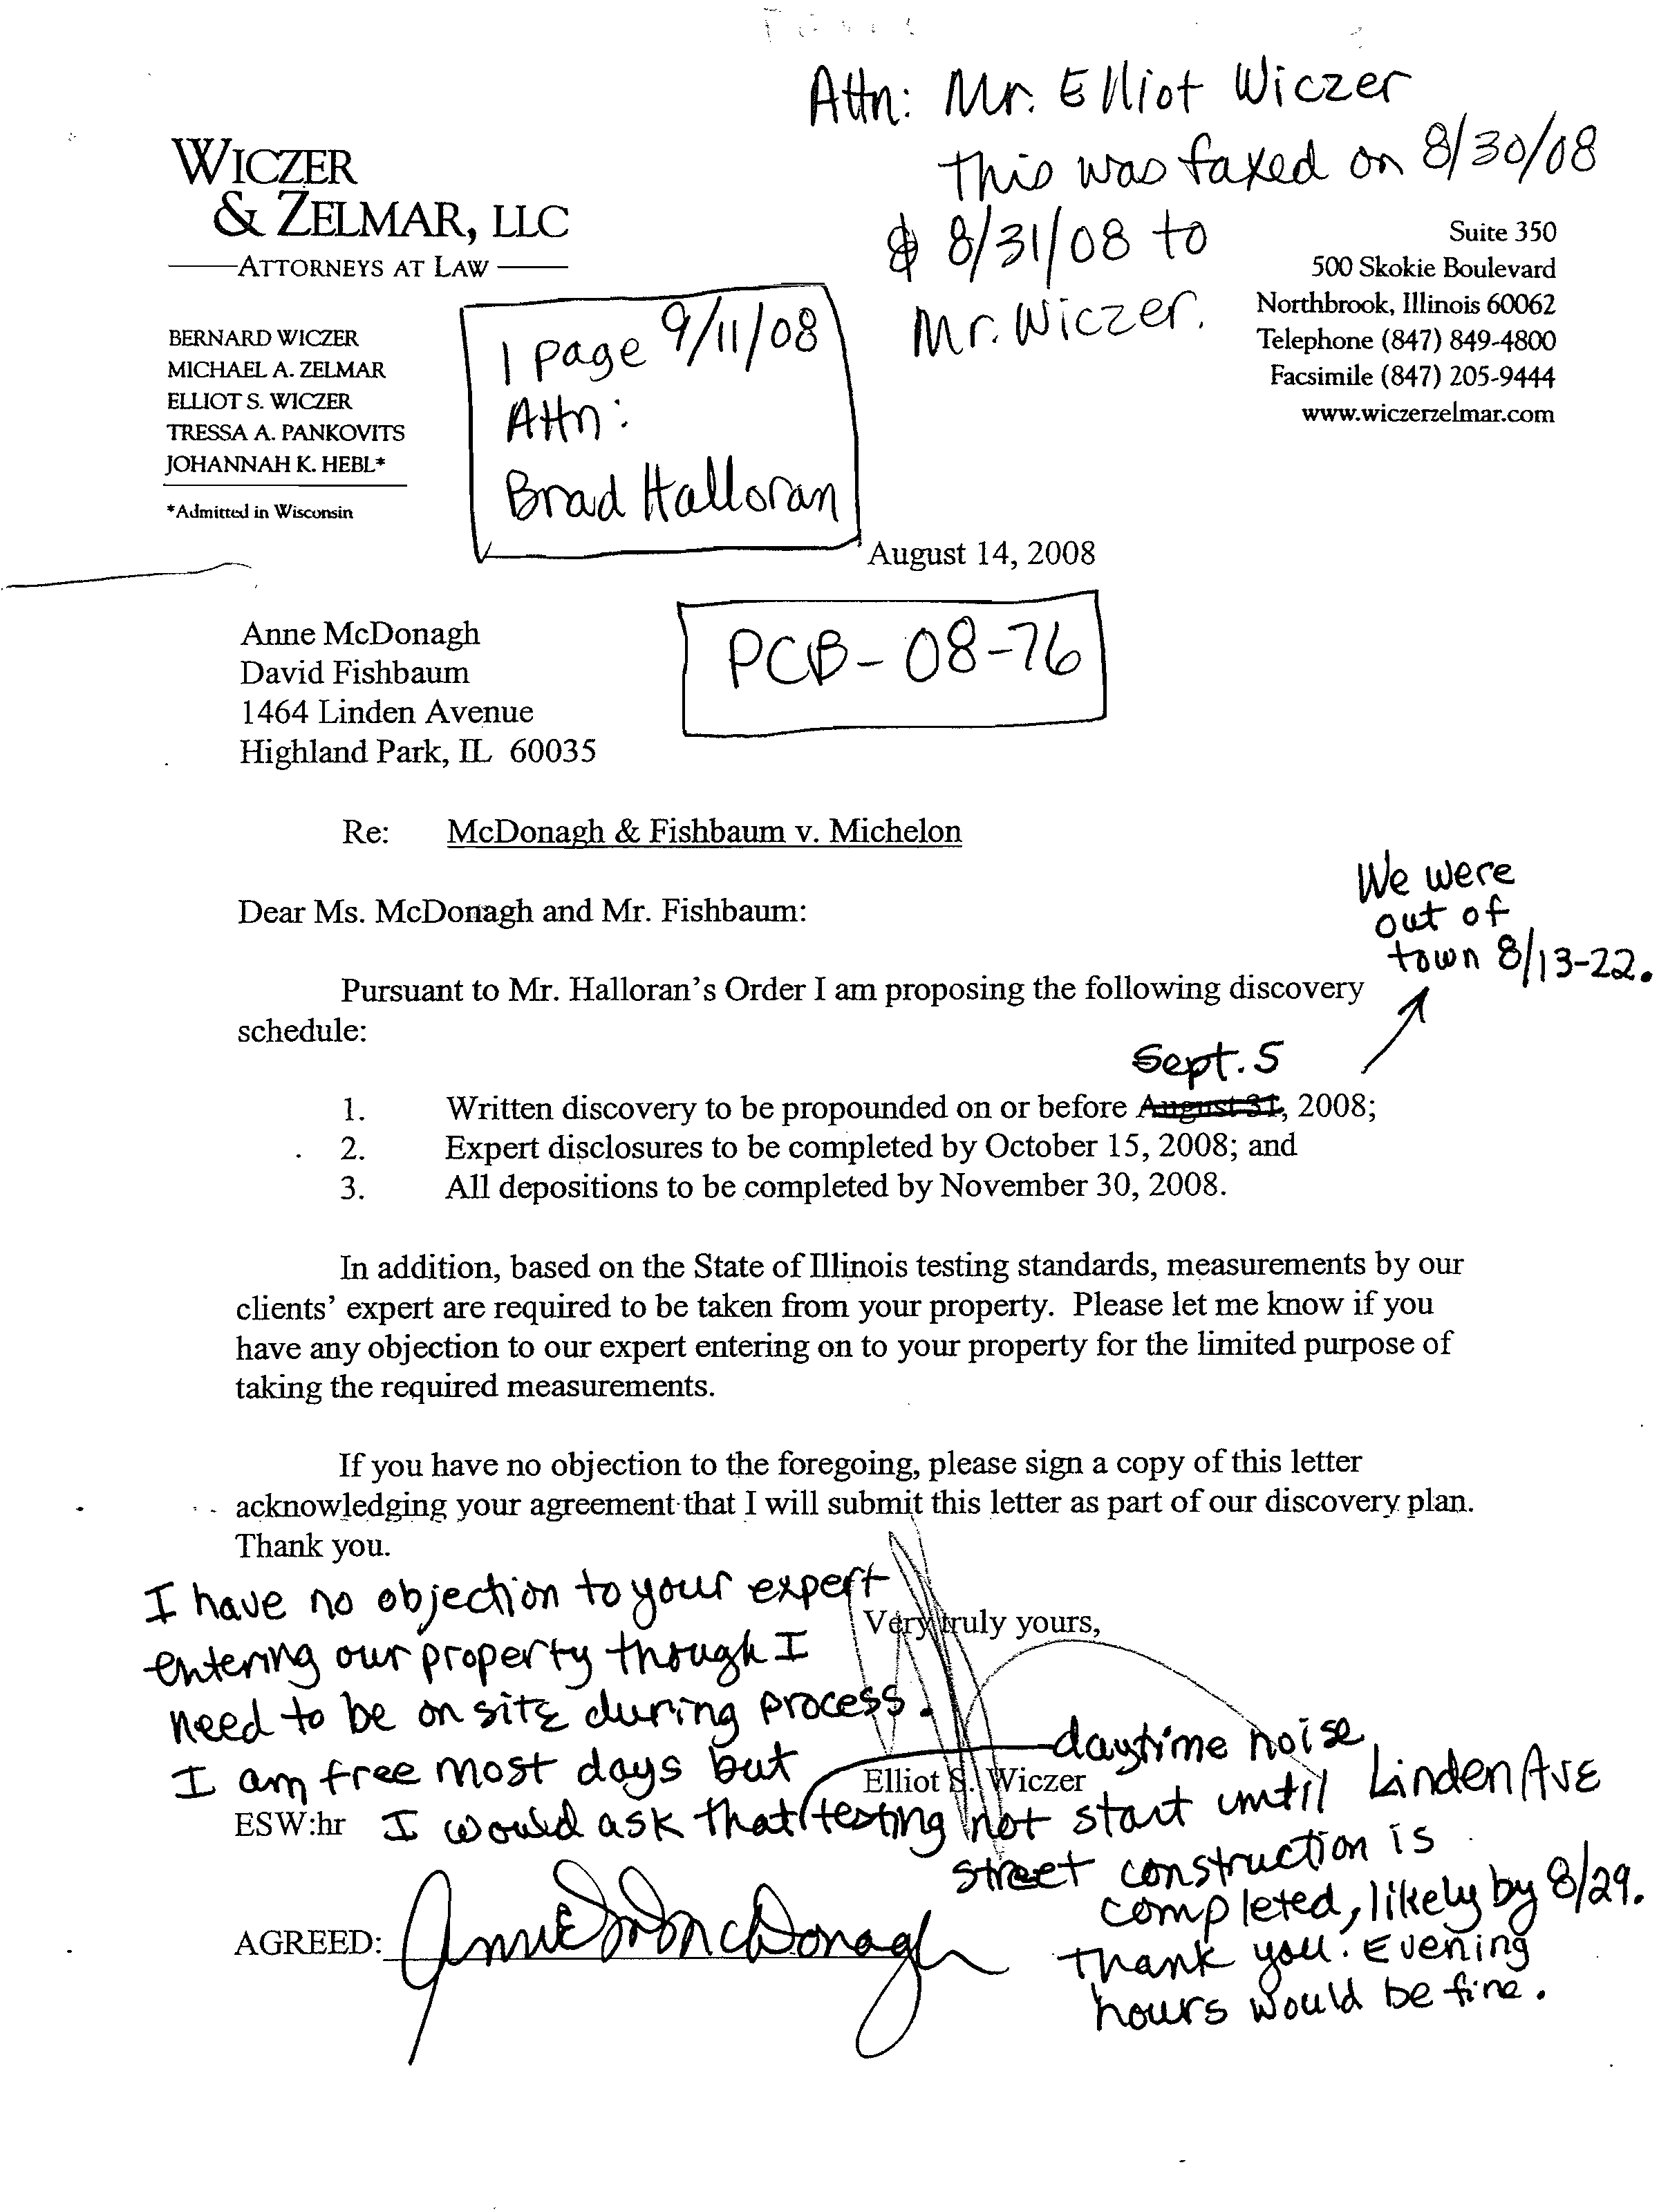 Attn: Mr. Elliot Wiczer
This was faxed on 8/30/08
& 8/31/08 to
Mr. Wiczer.
WICZER
& ZELMAR, LLC
ATTORNEYS AT LAW
Suite 350
500 Skokie Boulevard
Northbrook, Illinois 60062
Telephone (847) 849-4800
Facsimile (847) 205-9444
www.wiczerzelmar.com
BERNARD WICZER
MICHAEL A. ZELMAR
ELLIOT S. WICZER
TRESSA A. PANKOVITS
JOHANNAH K. HEBL*
*Admitted in Wisconsin
1 page 9/11/08
Attn:
Brad Halloran
August 14, 2008
PCB-08-76
Anne McDonagh
David Fishbaum
1464 Linden Avenue
Highland Park, IL 60035
Re: McDonagh & Fishbaum v. Michelon
Dear Ms. McDonagh and Mr. Fishbaum:
We were
out of
town 8/13-22.
Pursuant to Mr. Halloran's Order I am proposing the following discovery
schedule:
Sept. 5
1. Written discovery to be propounded on or before August 31, 2008;
2. Expert disclosures to be completed by October 15, 2008; and
3. All depositions to be completed by November 30, 2008.
In addition, based on the State of Illinois testing standards, measurements by our
clients' expert are required to be taken from your property. Please let me know if you
have any objection to our expert entering on to your property for the limited purpose of
taking the required measurements.
If you have no objection to the foregoing, please sign a copy of this letter
acknowledging your agreement that I will submit this letter as part of our discovery plan.
Thank you.
Very truly yours,
Elliot S. Wiczer
ESW:hr
I have no objection to your expert
entering our property though I
need to be on site during process.
I am free most days but
I would ask that daytime noise
testing not start until Linden Ave
street construction is
completed, likely by 8/29.
Thank you. Evening
hours would be fine.
AGREED: Anne McDonagh